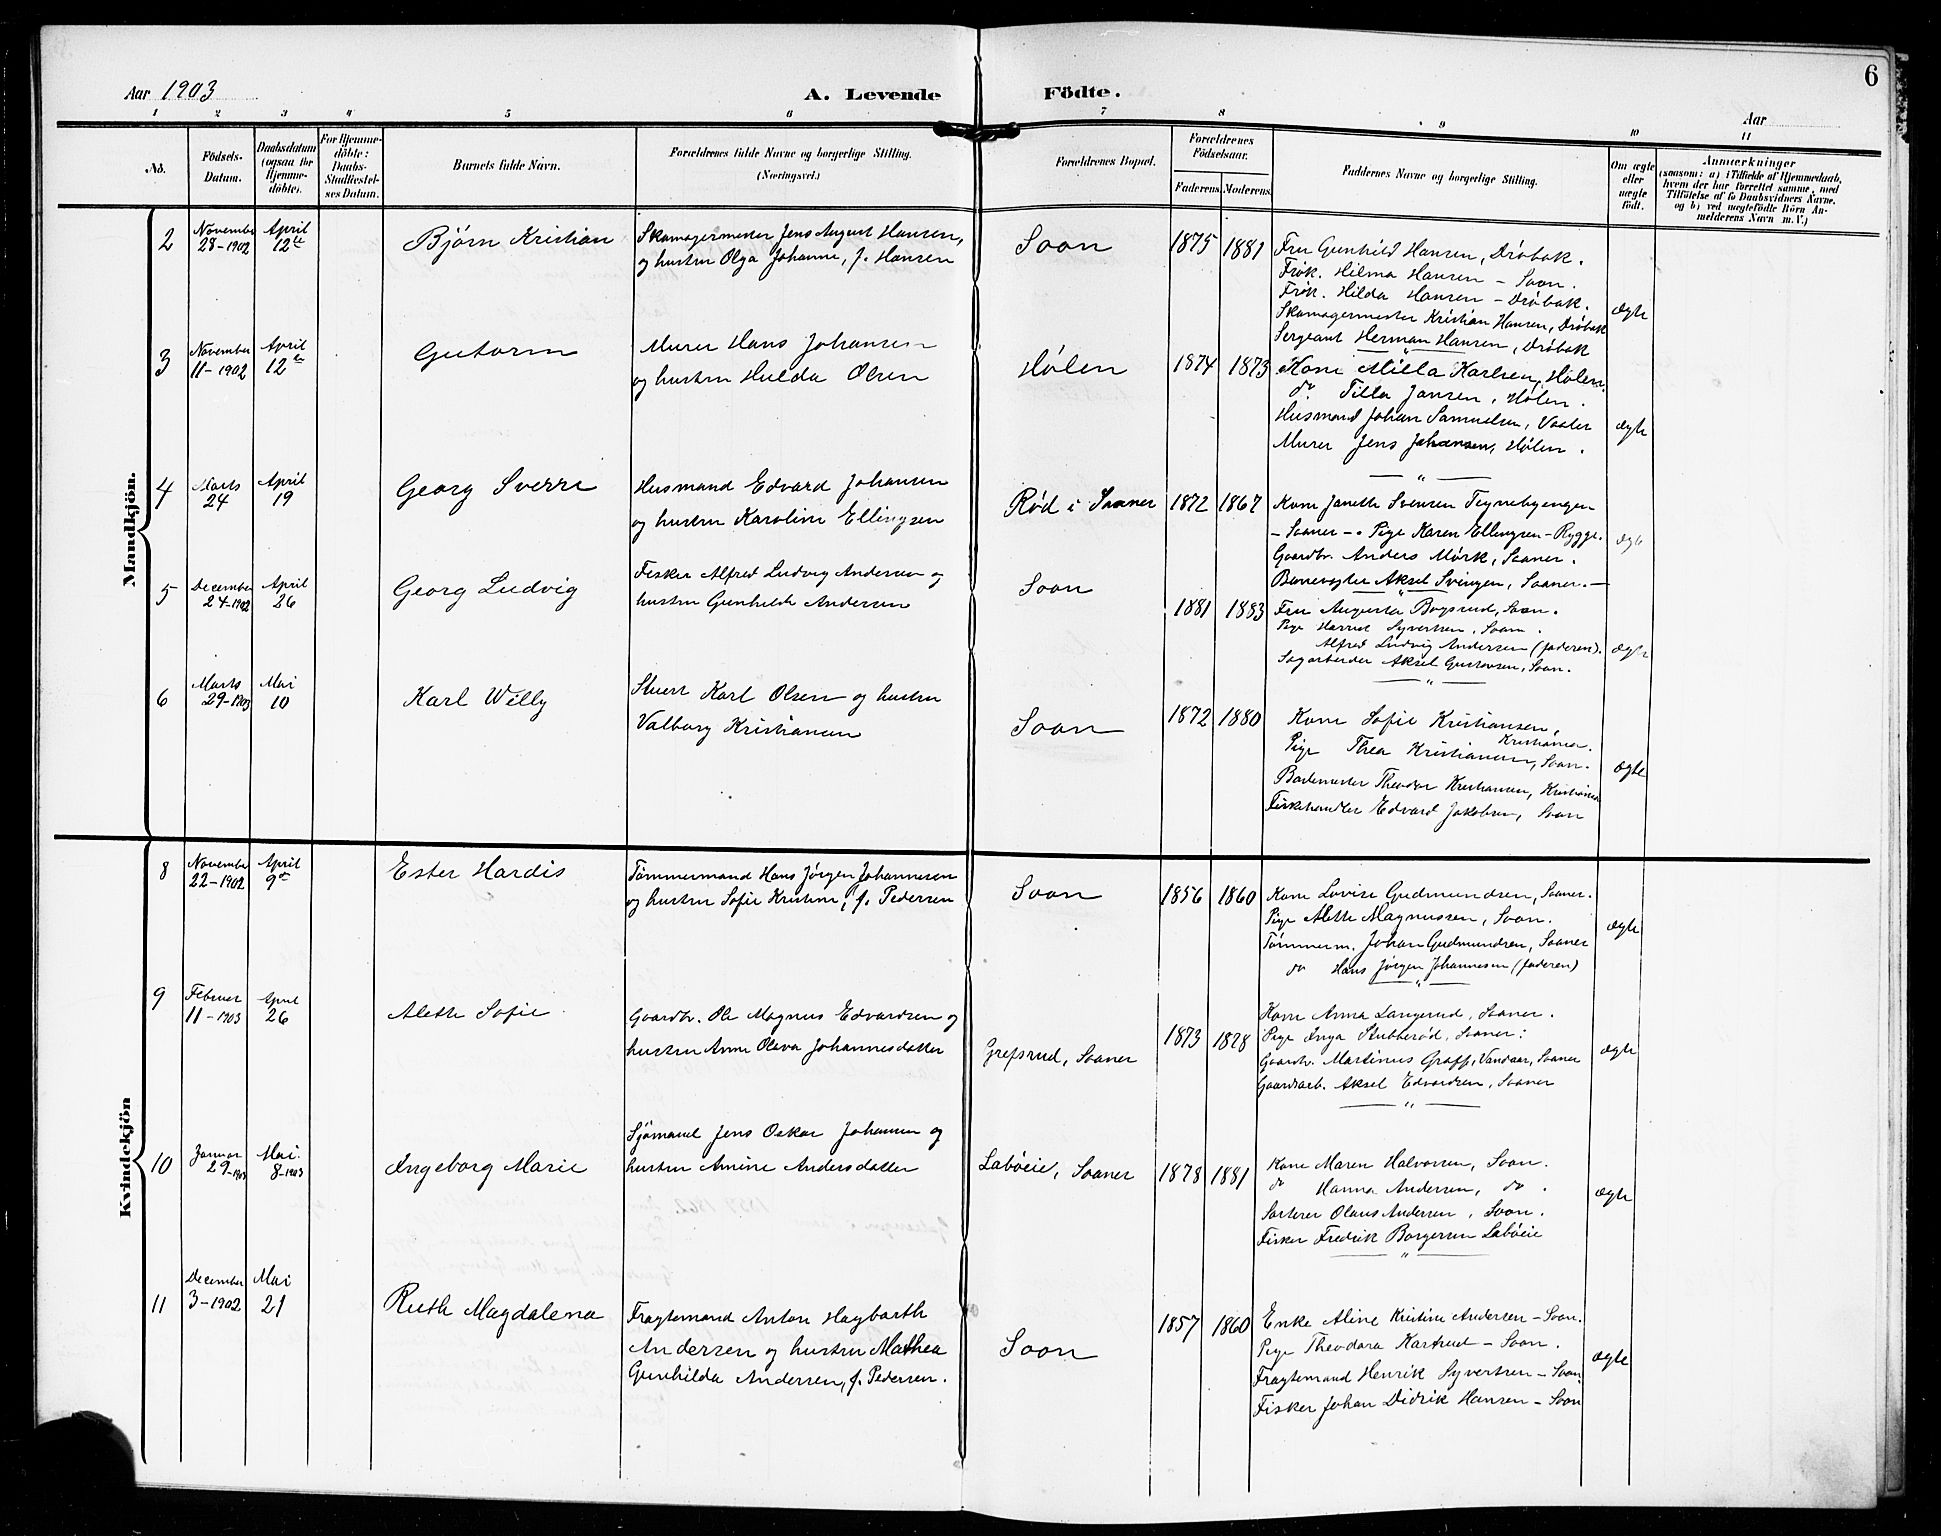 6
Aar 1903
A. Levende
Födte.
Aar
1 2 3 4 5 6 7 8 9 10 11
No.
Födsels-Datum.
Daabsdatum (ogsaa for Hjemmedöbte).
For Hjemmedöbte: Daabs-Stadfæstelses Datum.
Barnets fulde Navn.
Forældrenes fulde Navne og borgerlige Stilling.
(Næringsvei.)
Forældrenes Bopæl.
Forældrenes Födselsaar.
Faderens. Moderens.
Faddernes Navne og borgerlige Stilling.
Om ægte eller uægte födt.
Anmærkninger
(saasom: a) i Tilfælde af Hjemmedaab, hvem der har forrettet samme, med Tilföielse af to Daabsvidners Navne, og b) ved uægtefödte Börn Anmelderens Navn m. V.)
Mandkjön.
2
November 28-1902
April 12te
Bjørn Kristian
Skomagermester Jens August Hansen,
og hustru Olga Johanne, f. Hansen
Soon
1875 1881
Fru Gunhild Hansen, Drøbak.
Frøk. Hilma Hansen – Soon.
Frøk. Hilda Hansen – Drøbak.
Skomagermester Kristian Hansen, Drøbak
Sergeant Herman Hansen, Drøbak
ægte
3
November 11-1902
April 12te
Gutorm
Murer Hans Johansen
og hustru Hulda Olsen
Hølen
1874 1873
Kone Milla Karlsen, Hølen.
do Tilla Jansen, Hølen.
Husmand Johan Samuelsen, Vaaler
Murer Jens Johansen, Hølen.
ægte
4
Marts 24
April 19
Georg Sverre
Husmand Edvard Johansen
og hustru Karoline Ellingsen
Rød i Saaner
1872 1867
Kone Janette Svensen Teynebyengen
– Saaner –. Pige Karen Ellingsen – Rygge.
Gaardbr. Anders Mørk, Saaner.
Banevogter Aksel Svingen, Saaner. –
ægte
5
December 24-1902
April 26
Georg Ludvig
Fisker Alfred Ludvig Andersen og
hustru Gunhilde Andersen
Soon
1881 1883
Fru Augusta Bogsrud, Soon.
Pige Harriet Syvertsen, Soon.
Alfred Ludvig Andersen (faderen).
Sagarbeider Aksel Gustavsen, Soon.
ægte
6
Marts 29-1903
Mai 10
Karl Willy
Stuert Karl Olsen og hustru
Valborg Kristiansen
Soon
1872 1880
Kone Sofie Kristiansen,
Kristiania.
Pige Thea Kristiansen, Soon.
Bademester Theodor Kristiansen, Kristiania
Fiskehandler Edvard Jakobsen, Soon
ægte
Kvindekjön
8
November 22-1902
April 9de
Ester Hardis
Tømmermand Hans Jørgen Johannesen
og hustru Sofie Kristine, f. Pedersen
Soon
1856 1860
Kone Lovise Gudmundsen, Saaner.
Pige Alette Magnussen, Soon.
Tømmerm. Johan Gudmundsen, Saaner
do Hans Jørgen Johannesen (faderen)
ægte
9
Februar 11-1903
April 26
Alette Sofie
Gaardbr. Ole Magnus Edvardsen og
hustru Anne Olava Johannesdatter
Grefsrud, Saaner
1873 1878
Kone Anna Langerud, Saaner.
Pige Inga Stubberød, Saaner.
Gaardbr. Martinus Graff, Vandaar, Saaner
Gaardarb. Aksel Edvardsen, Saaner
ægte
10
Januar 29-1903
Mai 8-1903
Ingeborg Marie
Sjømand Jens Oskar Johansen og
hustru Amine Andersdatter
Labøeie, Saaner
1878 1881
Kone Maren Halvorsen, Soon.
do Hanna Andersen, do.
Sorterer Olaus Andersen, Soon.
Fisker Fredrik Borgersen Labøeie
ægte
11
December 3-1902
Mai 21
Ruth Magdalena
Fragtemand Anton Hagbarth
Andersen og hustru Mathea
Gunhilda Andersen, f. Pedersen.
Soon
1857 1860
Enke Aline Kristine Andersen – Soon.
Pige Theodora Karterud – Soon.
Fragtemand Henrik Syvertsen – Soon.
Fisker Johan Didrik Hansen – Soon
ægte